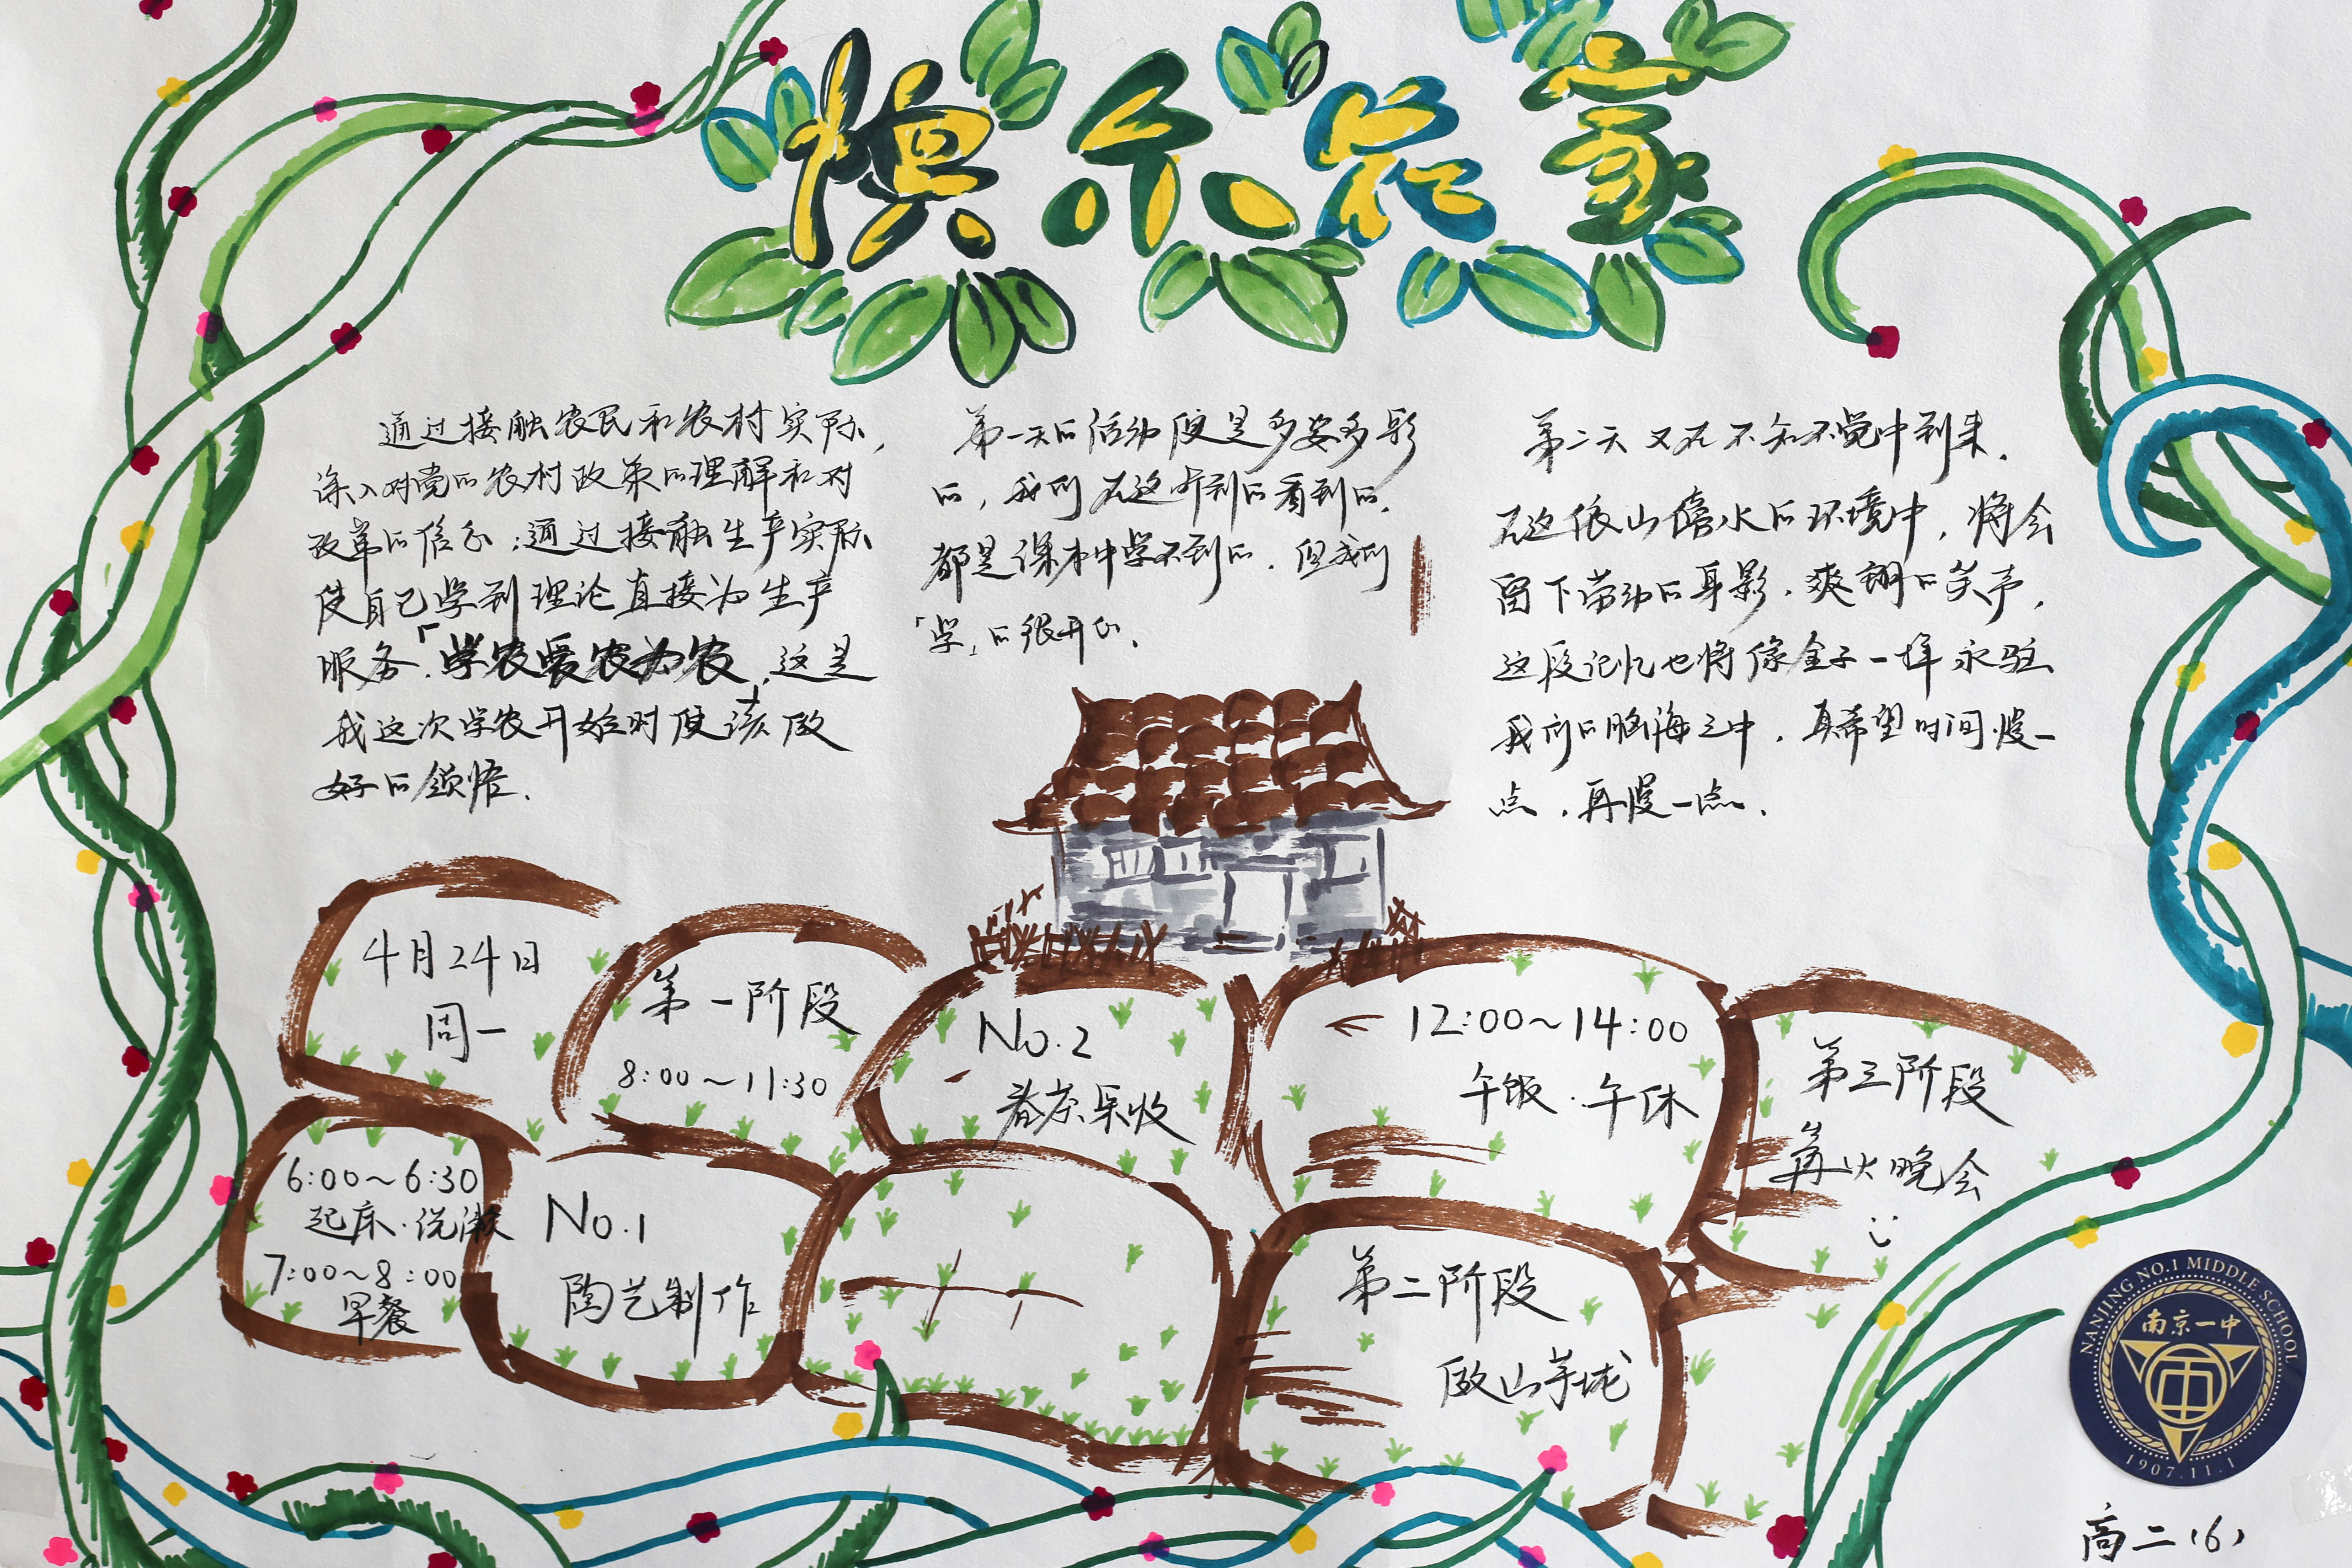 慎尔农家
通过接触农民和农村实际,
深入对党的农村政策的理解和对
改革的信心;通过接触生产实际
使自己学到理论直接为生产
服务.「学农爱农为农」,这是
我这次学农开始时便该做
好的领悟.
第一天的活动便是多姿多彩
的,我们在这听到的看到的.
都是课本中学不到的.但我们
「学」的很开心.
第二天又在不知不觉中到来.
在这依山傍水的环境中,将会
留下劳动的身影.爽朗的笑声,
这段记忆也将像金子一样永驻
我们的脑海之中,真希望时间慢一
点,再慢一点.
4月24日
周一
6:00~6:30
起床·洗漱
7:00~8:00
早餐
第一阶段
8:00~11:30
No.1
陶艺制作
No.2
春茶采收
12:00~14:00
午饭·午休
第二阶段
做山芋垅
第三阶段
篝火晚会
NANJING NO.1 MIDDLE SCHOOL
南京一中
1907.11.1
高二(6)